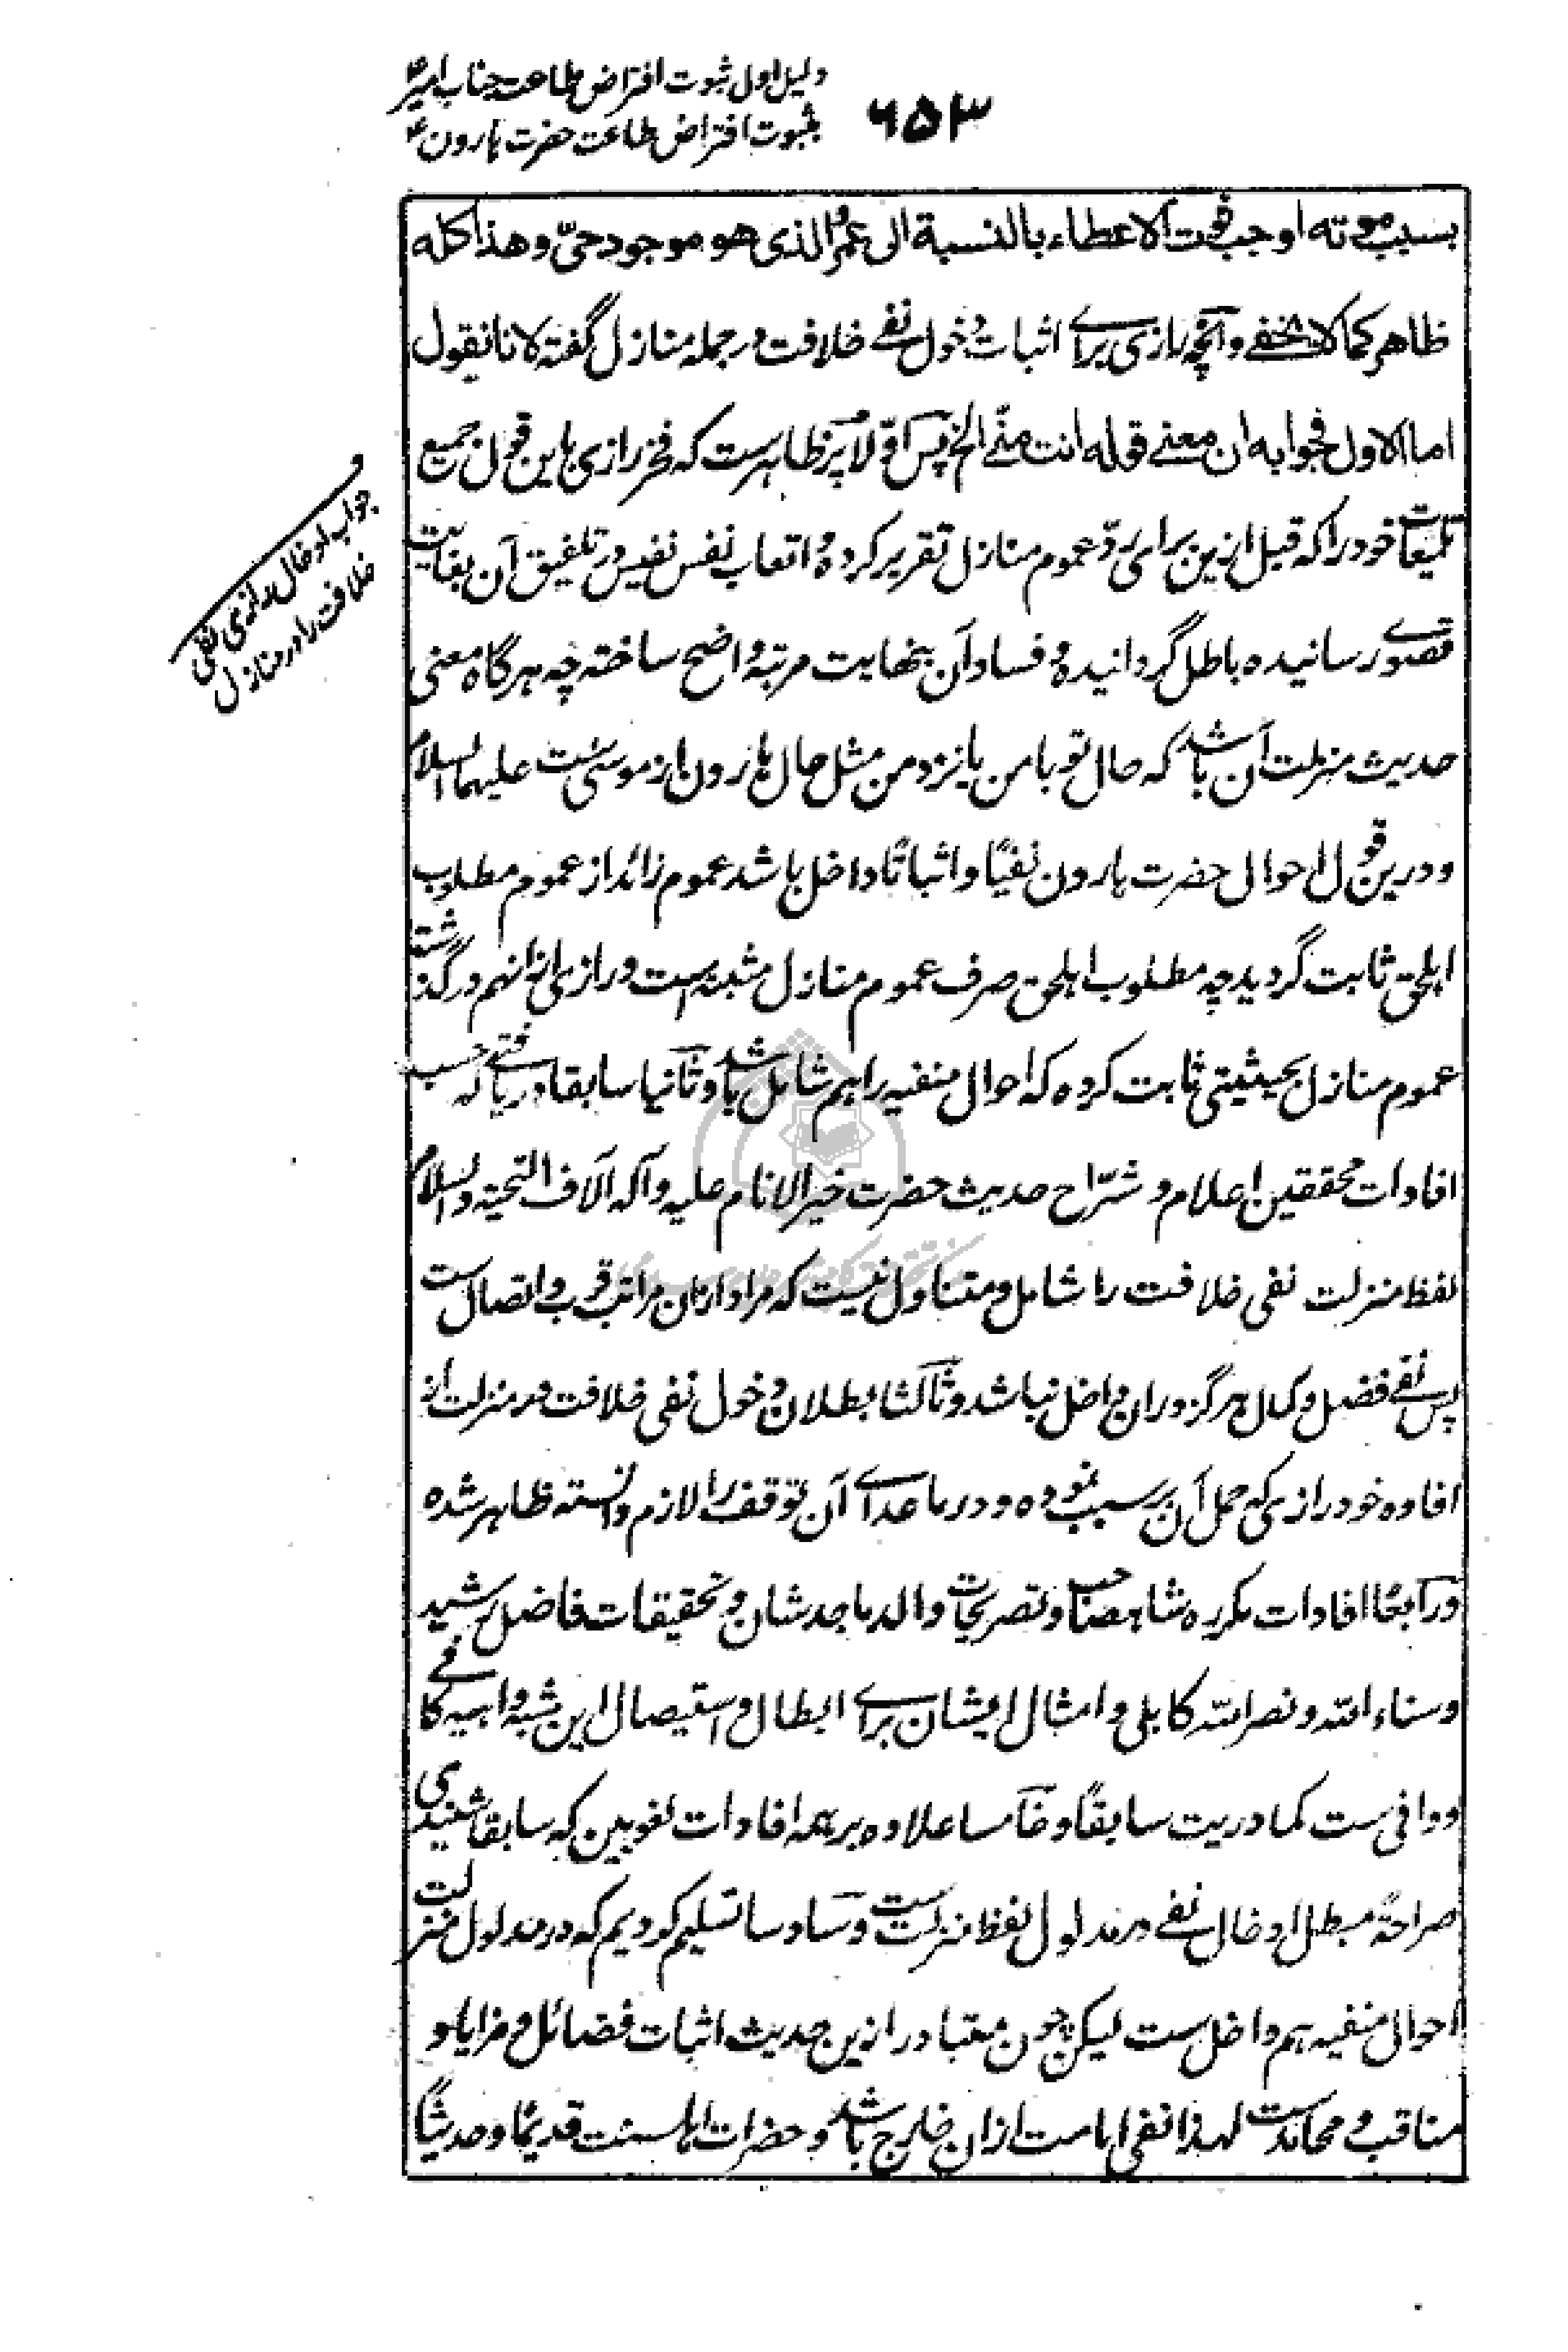 دلیل اول ثبوت افتراض طاعت جناب امیرؑ
بثبوت افتراض طاعت حضرت هارونؑ
۶۵۳
بسبب موته اوجب فوت الاعطاء بالنسبة الی عمرو الذی هو موجود حیّ و هذا کله
ظاهر کما لا یخفی و آنچه رازی برای اثبات دخول نفی خلافت در جمله منازل گفته لانا نقول
اما الاول فجوابه ان معنی قوله انت منّی الخ پس اوّلا پر ظاهرست که فخر رازی باین قول جمیع
تلمیعات خود را که قبل ازین برای ردّ عموم منازل تقریر کرده و اتعاب نفس نفیس در تلفیق آن بغایت
قصوی رسانیده باطل گردانیده و فساد آن بنهایت مرتبه واضح ساخته چه هرگاه معنی
حدیث منزلت آن باشد که حال تو با من یا نزد من مثل حال هارون از موسی ست علیهما السلام
و درین قول احوال حضرت هارون نفیًا و اثباتًا داخل باشد عموم زائد از عموم مطلوب
اهلحق ثابت گردید چه مطلوب اهلحق صرف عموم منازل مثبته است و رازی ازان هم در گذشته
عموم منازل بحیثیتی ثابت کرده که احوال منفیه را هم شامل باشد و ثانیا سابقا دریافتی که حسب
افادات محققین اعلام و شرّاح حدیث حضرت خیر الانام علیه و آله آلاف التحیة و السلام
لفظ منزلت نفی خلافت را شامل و متناول نیست که مراد ازان مراتب قرب و اتصال ست
پس نفی فضل و کمال هرگز دران داخل نباشد و ثالثا بطلان دخول نفی خلافت در منزلت از
افاده خود رازی که حمل آن بر سبب نموده و در ما عدای آن توقف را لازم دانسته ظاهر شده
و رابعًا افادات مکرره شاهصاحب و تصریحات والد ماجد شان و تحقیقات فاضل رشید
و سناء الله و نصر الله کابلی و امثال ایشان برای ابطال و استیصال این شبه واهیه کافی
و وافی ست کما دریت سابقًا و خامسا علاوه برینهمه افادات لغویین که سابقا شنیدی
صراحةً مبطل ادخال نفی در مدلول لفظ منزلت ست و سادسا تسلیم کردیم که در مدلول منزلت
احوال منفیه هم داخل ست لیکن چون متبادر ازین حدیث اثبات فضائل و مزایا و
مناقب و محامدست لهذا نفی امامت ازان خارج باشد و حضرات اهلسنت قدیمًا و حدیثًا
و
جواب ادخال رازی نفی
خلافت را در منازل